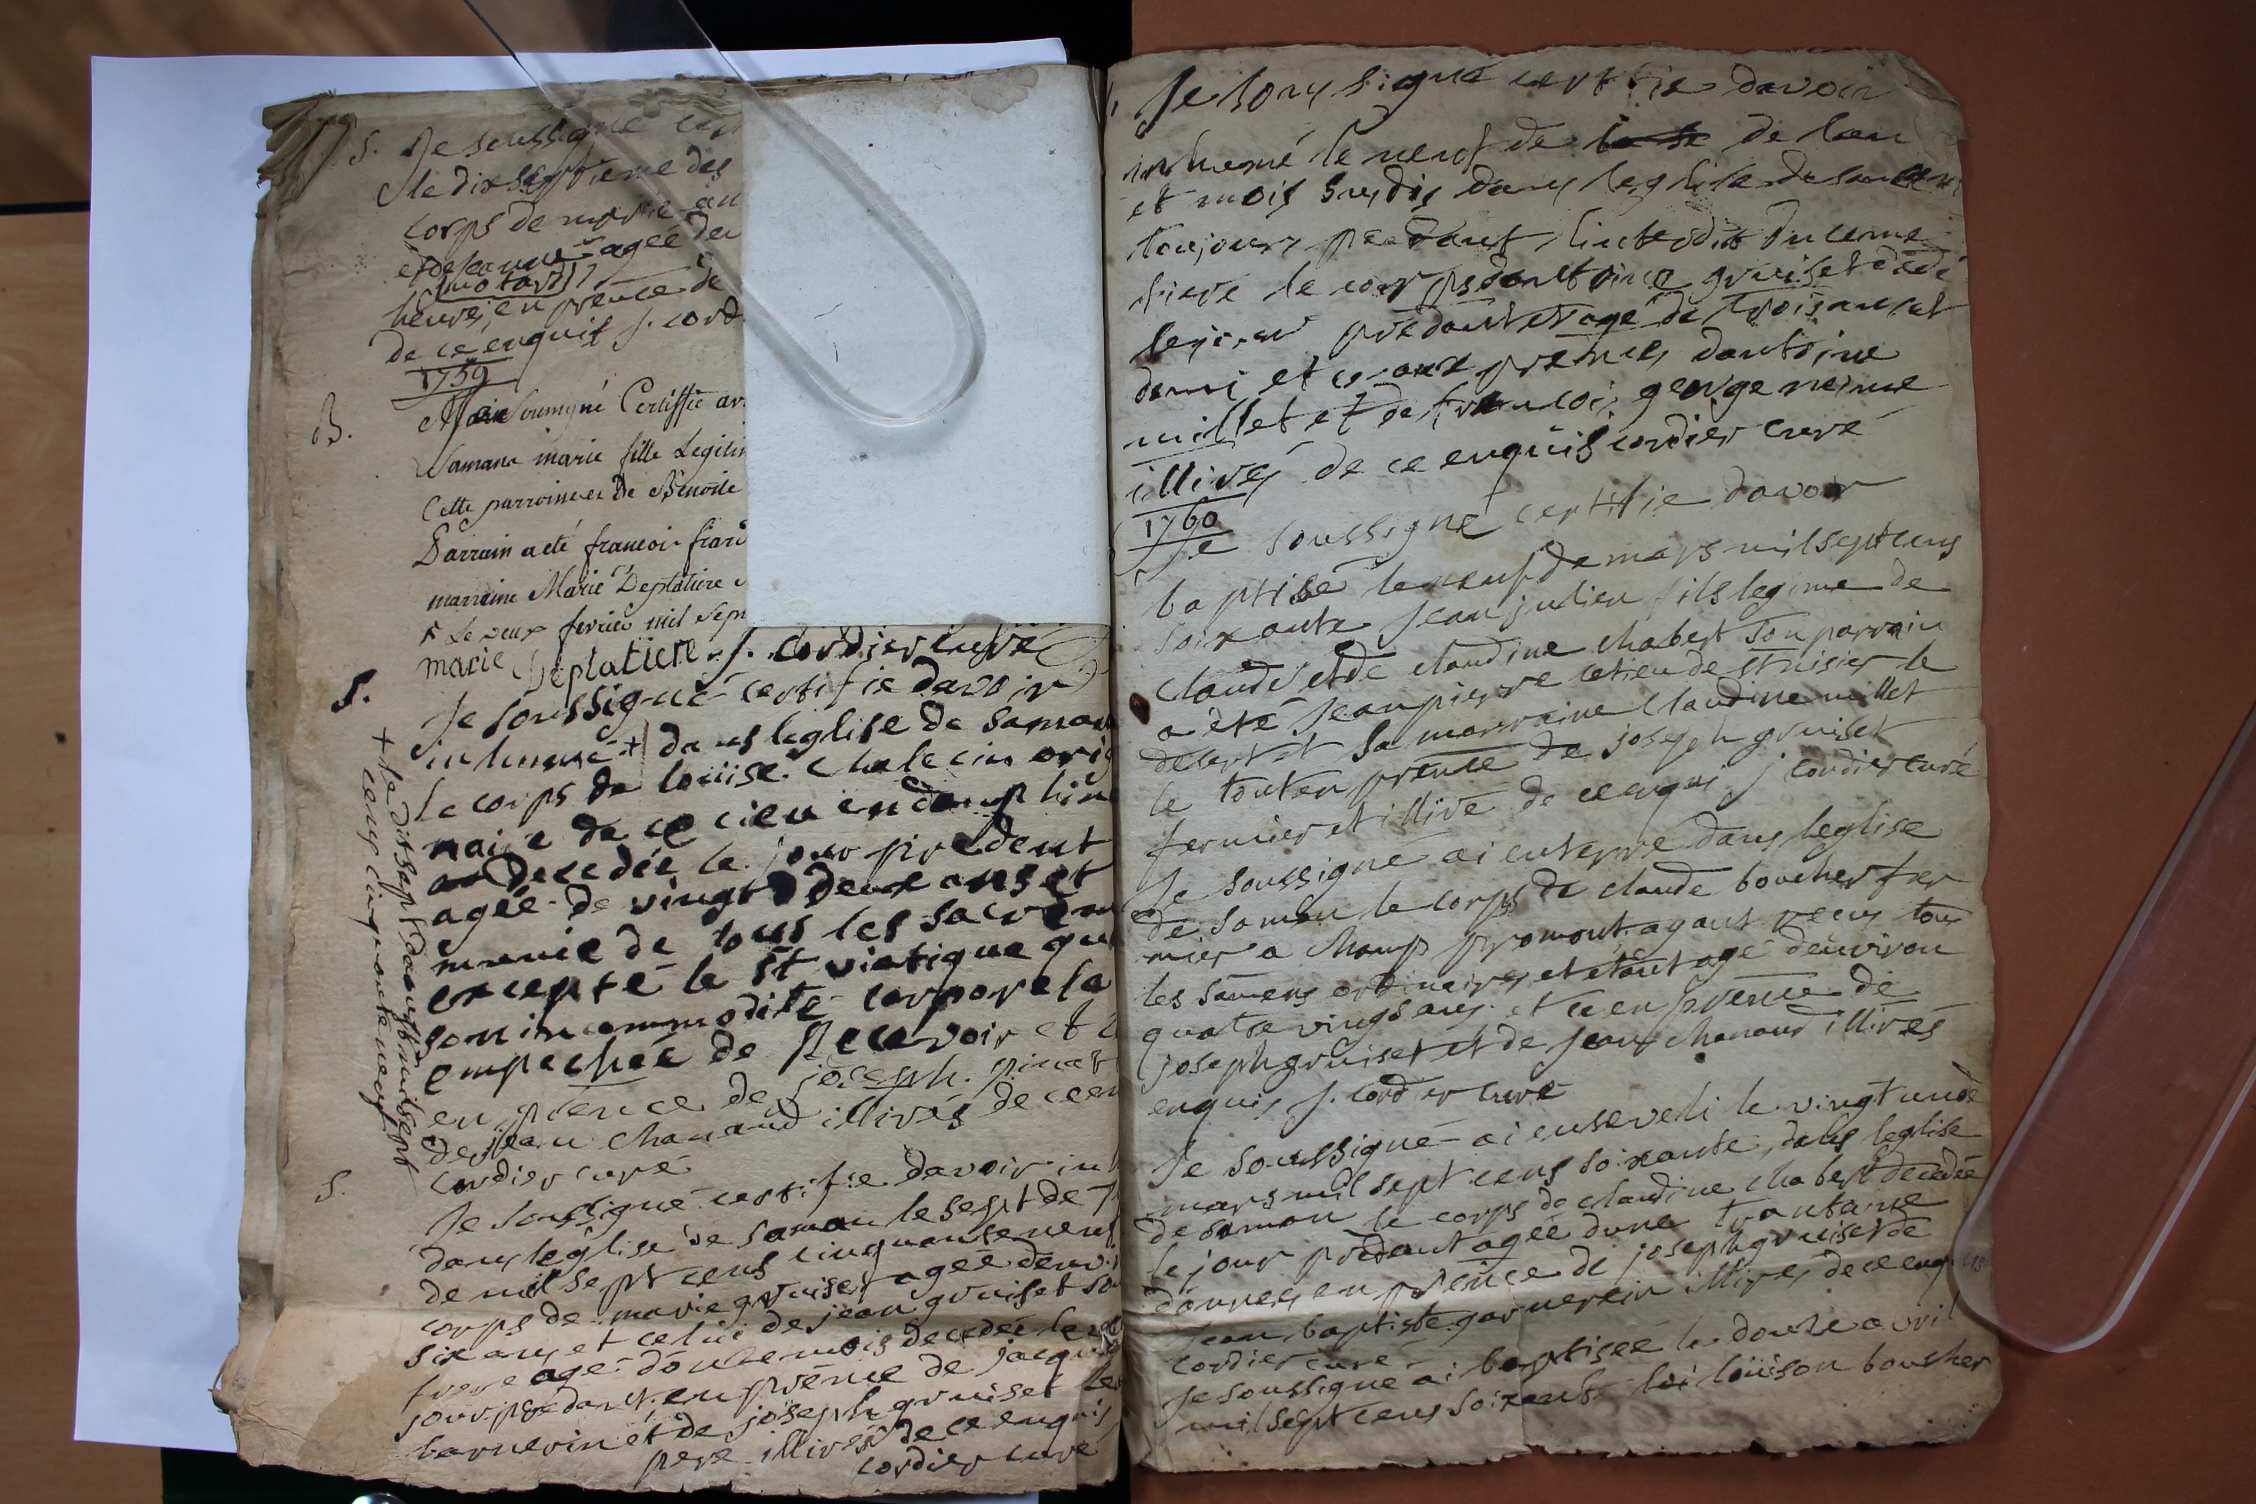 S. Je soussigné
le dixseptieme des
corps de marie
et de jeanne agée
motard
heures, en prence de
de ce enquis J. cord
1759
B.
soussigné Certiffie
Samane marie fille Legiti
Cette parroisse et De Benoite
Parrain a été francois
marraine Marie Deplatiere
Le deux fevrier mil sept
marie Deplatiere J. cordier curé
S.
Je soussigné certifie davoir
inhumé + dans leglise de saman
le corps de loüise chalecin orig
naire de ce lieu en dauphin
decedée le jour prcedent
agée de vingt deux ans et
munie de tous les sacrem
excepté le St viatique qu
son incommodité corporele
empechée de recevoir et
en prence de joseph pinet
de jean chanaud illirés de ce en
cordier curé
+ le dixsept daoust mil sept
cens cinquante neuf
S.
Je soussigné certifie davoir in
dans leglise de saman le sept de
de mil sept cens cinquante neuf
corps de marie gruiset agée denvi
six ans et celui de jean gruiset so
frere agé donse mois decedés le
jour prcedant en prence de jacque
barnerin et de joseph gruiset le
pere illirés de ce enquis
cordier curé
Je soussigné certifie davoir
inhumé le neuf de de lan
et mois susdis dans leglise de saman
toujours pendant linterdit du ceme
tiere le corps dantoine gruiset decedé
le jour prcedant et agé de trois ans et
demi et ce aux prences dantoine
millet et de francois george
illirés de ce enquis cordier curé
1760
Je soussigné certifie davoir
baptisé le neuf de mars mil sept cens
soixante jean julien fils legime de
claude et de claudine chabert son parrain
a été jean pierre cetieu de st nisier le
desert et sa marraine claudine millet
le tout en prence de joseph gruiset
fermier et illiré de ce enqui J cordier curé
Je soussigné ai enterré dans leglise
de saman le corps de claude boucher fer
mier a champ promont ayant recus tous
les samens ordinaires et étant agé denviron
quatre vings ans et ce en prence de
joseph gruiset et de jean chanaud illirés
enquis J. cordier curé
Je soussigné ai enseveli le vingt un de
mars mil sept cens soixante, dans leglise
de saman le corps de claudine chabert decedée
le jour prcedant agée dune trantaine
dannées en prence de joseph gruiset de
jean baptiste garnerein illirés de ce enquis
cordier curé
Je soussigné ai baptisée le douse avril
mil sept cens soixante loüison boucher